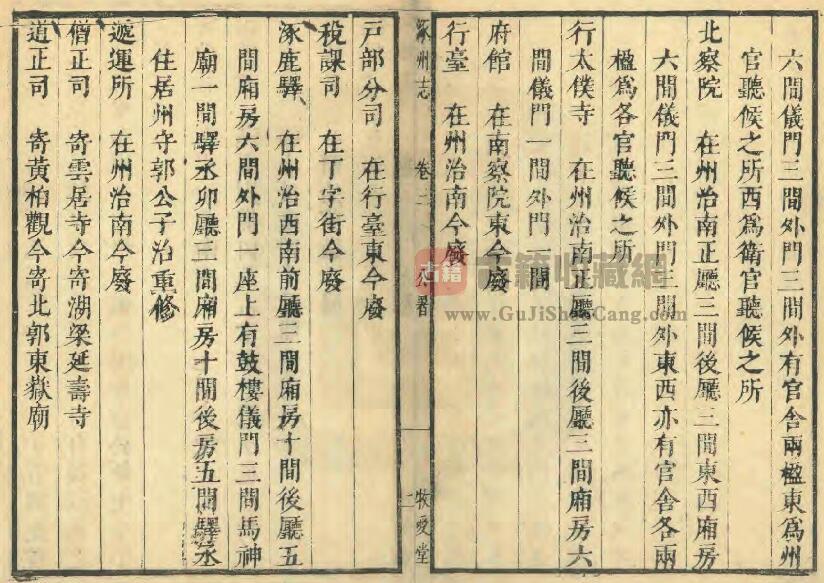 六間儀門三間外門三間外有官舎兩楹東爲州
官聽候之所西爲衛官聽候之所
北察院 在州治南正廳三間後廳三間東西廂房
六間儀門三間外門三間外東西亦有官舎各兩
楹爲各官聽候之所
行太僕寺 在州治南正廳三間後廳三間廂房六
間儀門一間外門一間
府館 在南察院東今廢
行臺 在州治南今廢
涿州志 卷二 公署 牧愛堂
戶部分司 在行臺東今廢
稅課司 在丁字街今廢
涿鹿驛 在州治西南前廳三間廂房十間後廳五
間廂房六間外門一座上有鼓樓儀門三間馬神
廟一間驛丞卯廳三間廂房十間後房五間驛丞
住居州守郭公子治重修
遞運所 在州治南今廢
僧正司 寄雲居寺今寄湖梁延壽寺
道正司 寄黃柏觀今寄北郭東嶽廟
古籍
古籍收藏網
www.GuJiShouCang.com